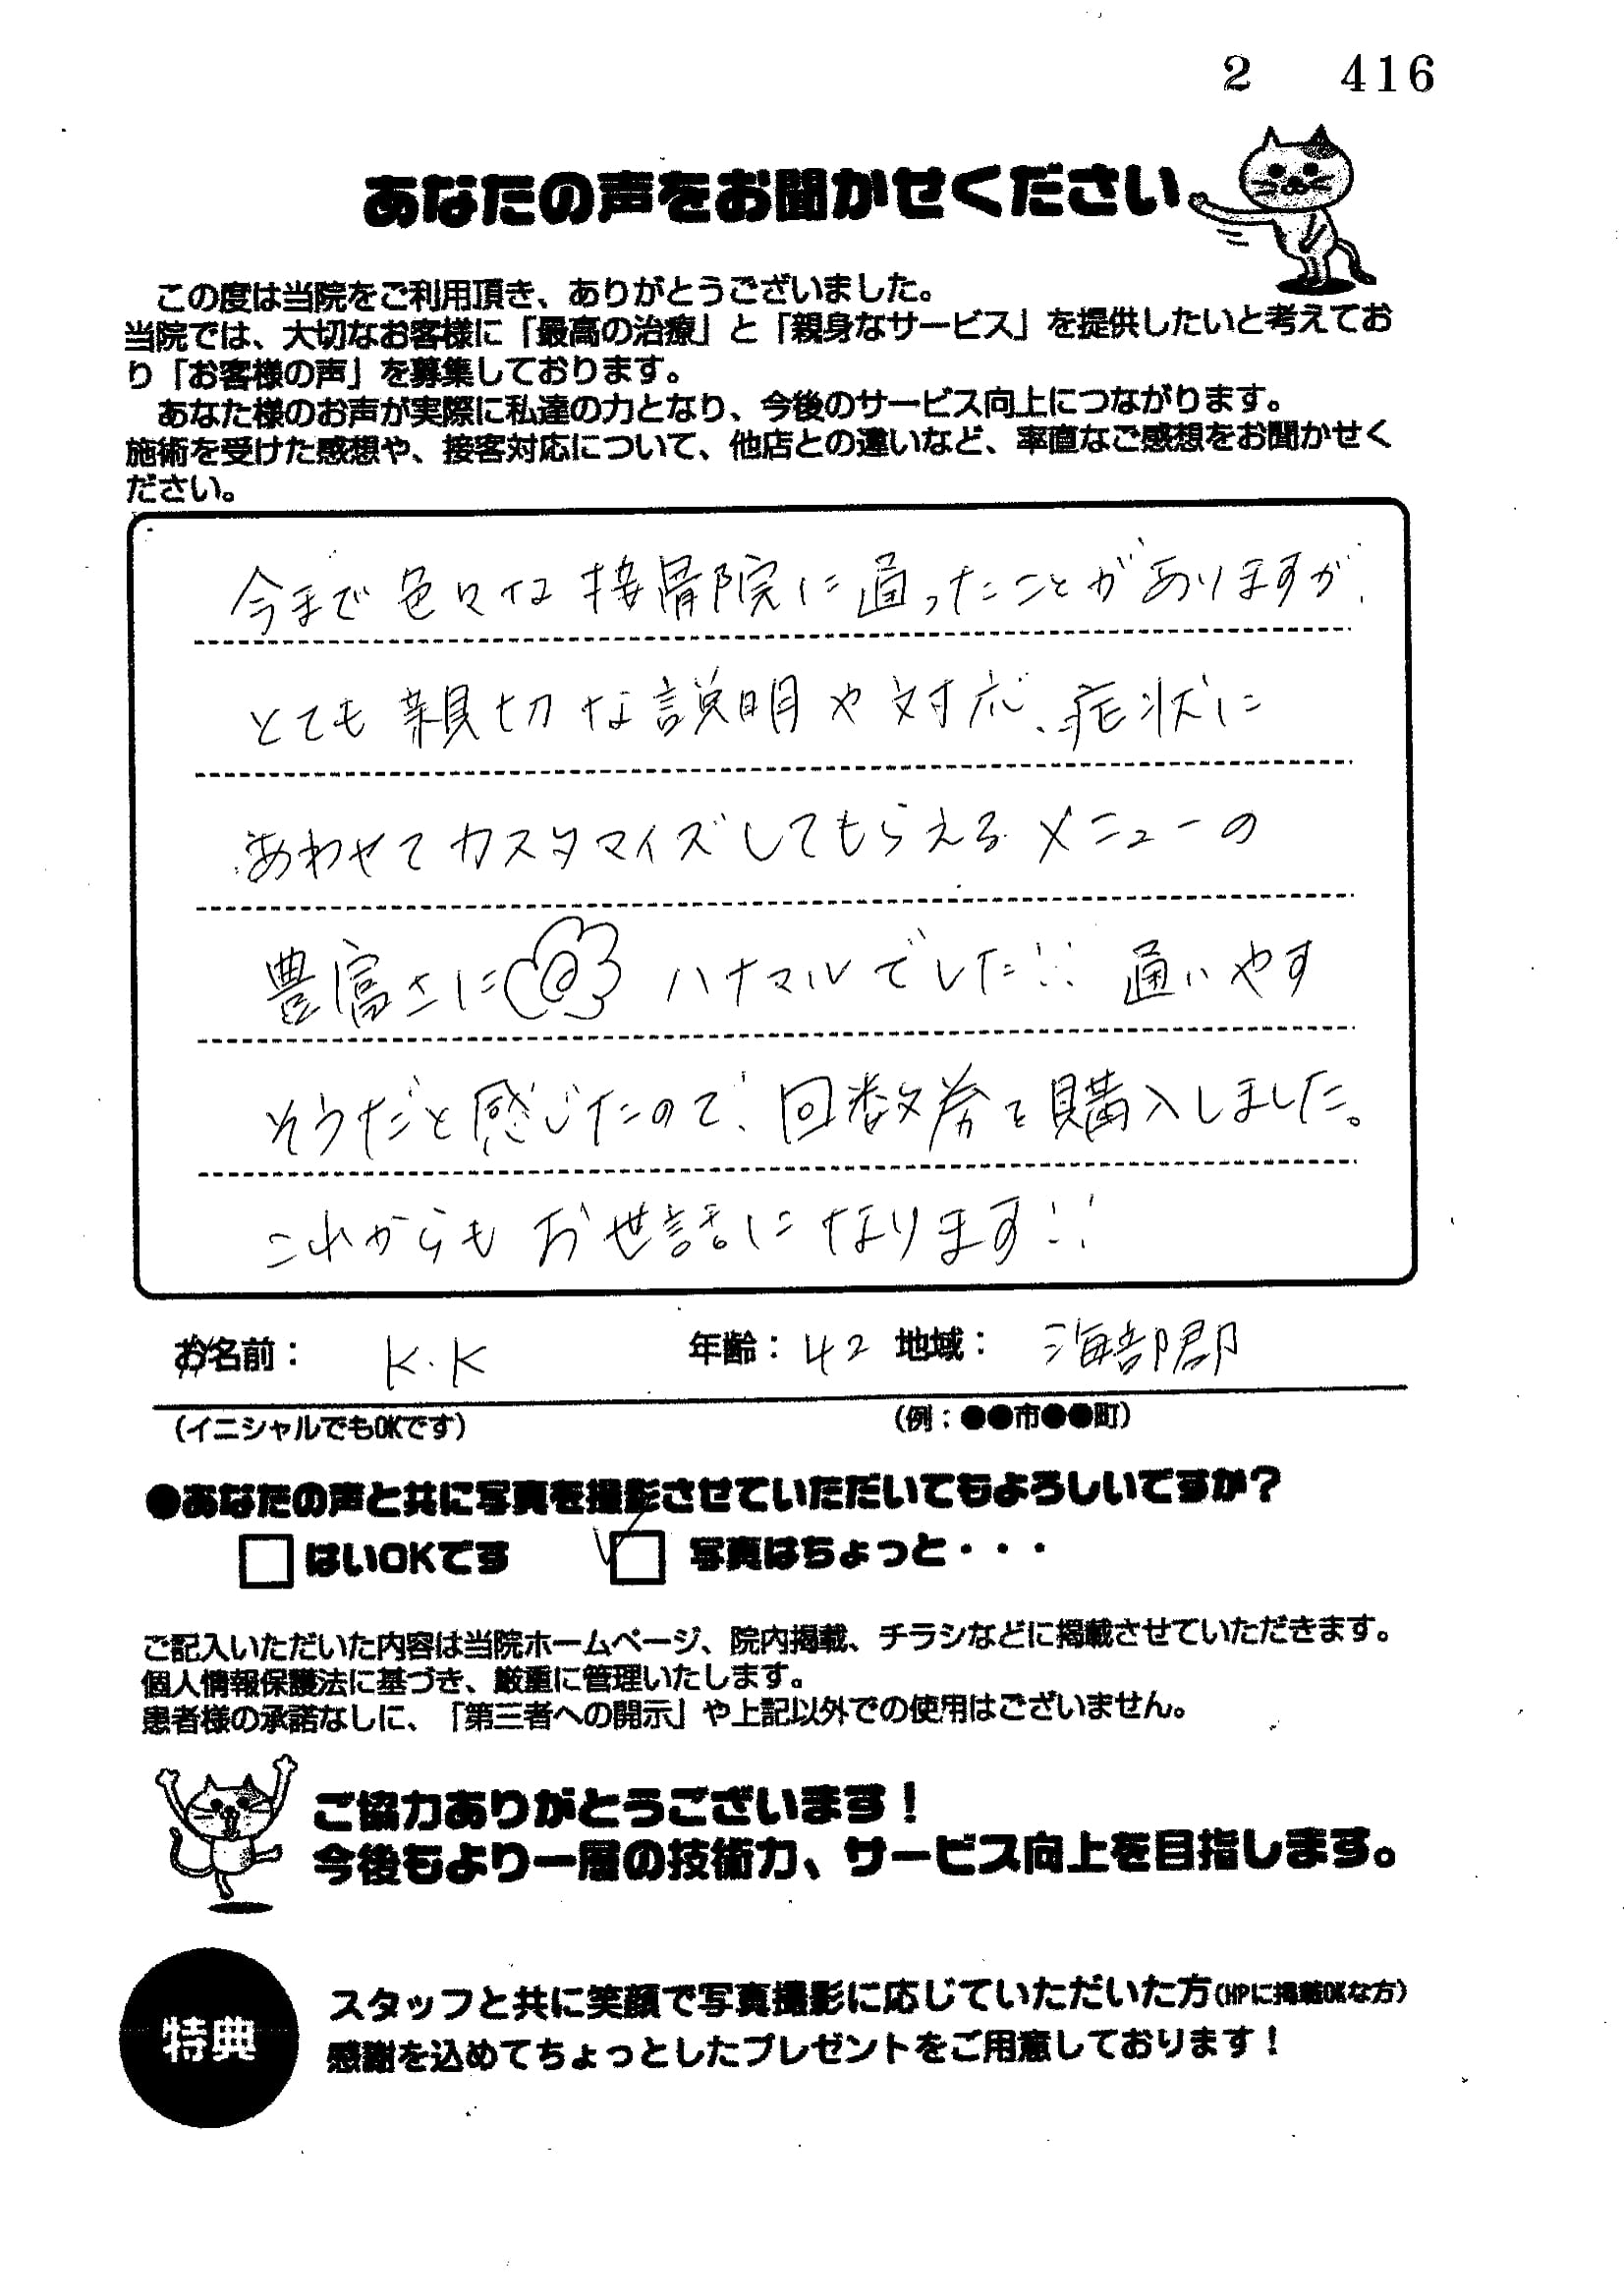 2 416
あなたの声をお聞かせください
この度は当院をご利用頂き、ありがとうございました。
当院では、大切なお客様に「最高の治療」と「親身なサービス」を提供したいと考えてお
り「お客様の声」を募集しております。
あなた様のお声が実際に私達の力となり、今後のサービス向上につながります。
施術を受けた感想や、接客対応について、他店との違いなど、率直なご感想をお聞かせく
ださい。
今まで色々な接骨院に通ったことがありますが、
とても親切な説明や対応、症状に
あわせてカスタマイズしてもらえるメニューの
豊富さにハナマルでした!! 通いやす
そうだと感じたので、回数券を購入しました。
これからもお世話になります!!
お名前： K.K 年齢：42 地域： 海部郡
（イニシャルでもOKです） （例：●●市●●町）
●あなたの声と共に写真を撮影させていただいてもよろしいですか？
はいOKです 写真はちょっと・・・
ご記入いただいた内容は当院ホームページ、院内掲載、チラシなどに掲載させていただきます。
個人情報保護法に基づき、厳重に管理いたします。
患者様の承諾なしに、「第三者への開示」や上記以外での使用はございません。
ご協力ありがとうございます！
今後もより一層の技術力、サービス向上を目指します。
特典
スタッフと共に笑顔で写真撮影に応じていただいた方（HPに掲載OKな方）
感謝を込めてちょっとしたプレゼントをご用意しております！